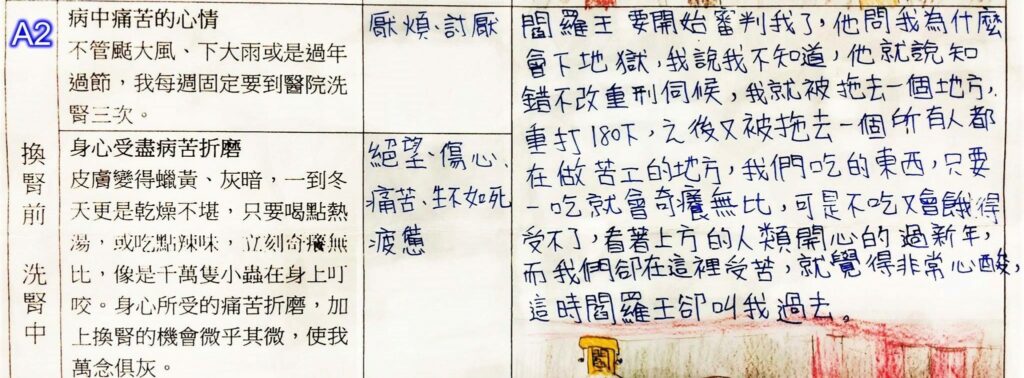 A2
換腎前 洗腎中
病中痛苦的心情
不管颳大風、下大雨或是過年
過節，我每週固定要到醫院洗
腎三次。
厭煩、討厭
身心受盡病苦折磨
皮膚變得蠟黃、灰暗，一到冬
天更是乾燥不堪，只要喝點熱
湯，或吃點辣味，立刻奇癢無
比，像是千萬隻小蟲在身上叮
咬。身心所受的痛苦折磨，加
上換腎的機會微乎其微，使我
萬念俱灰。
絕望、傷心、
痛苦、生不如死
疲憊
閻羅王要開始審判我了，他問我為什麼
會下地獄，我說我不知道，他就說知
錯不改重刑伺候，我就被拖去一個地方，
重打180下，之後又被拖去一個所有人都
在做苦工的地方，我們吃的東西，只要
一吃就會奇癢無比，可是不吃又會餓得
受不了，看著上方的人類開心的過新年，
而我們卻在這裡受苦，就覺得非常心酸，
這時閻羅王卻叫我過去。
閻